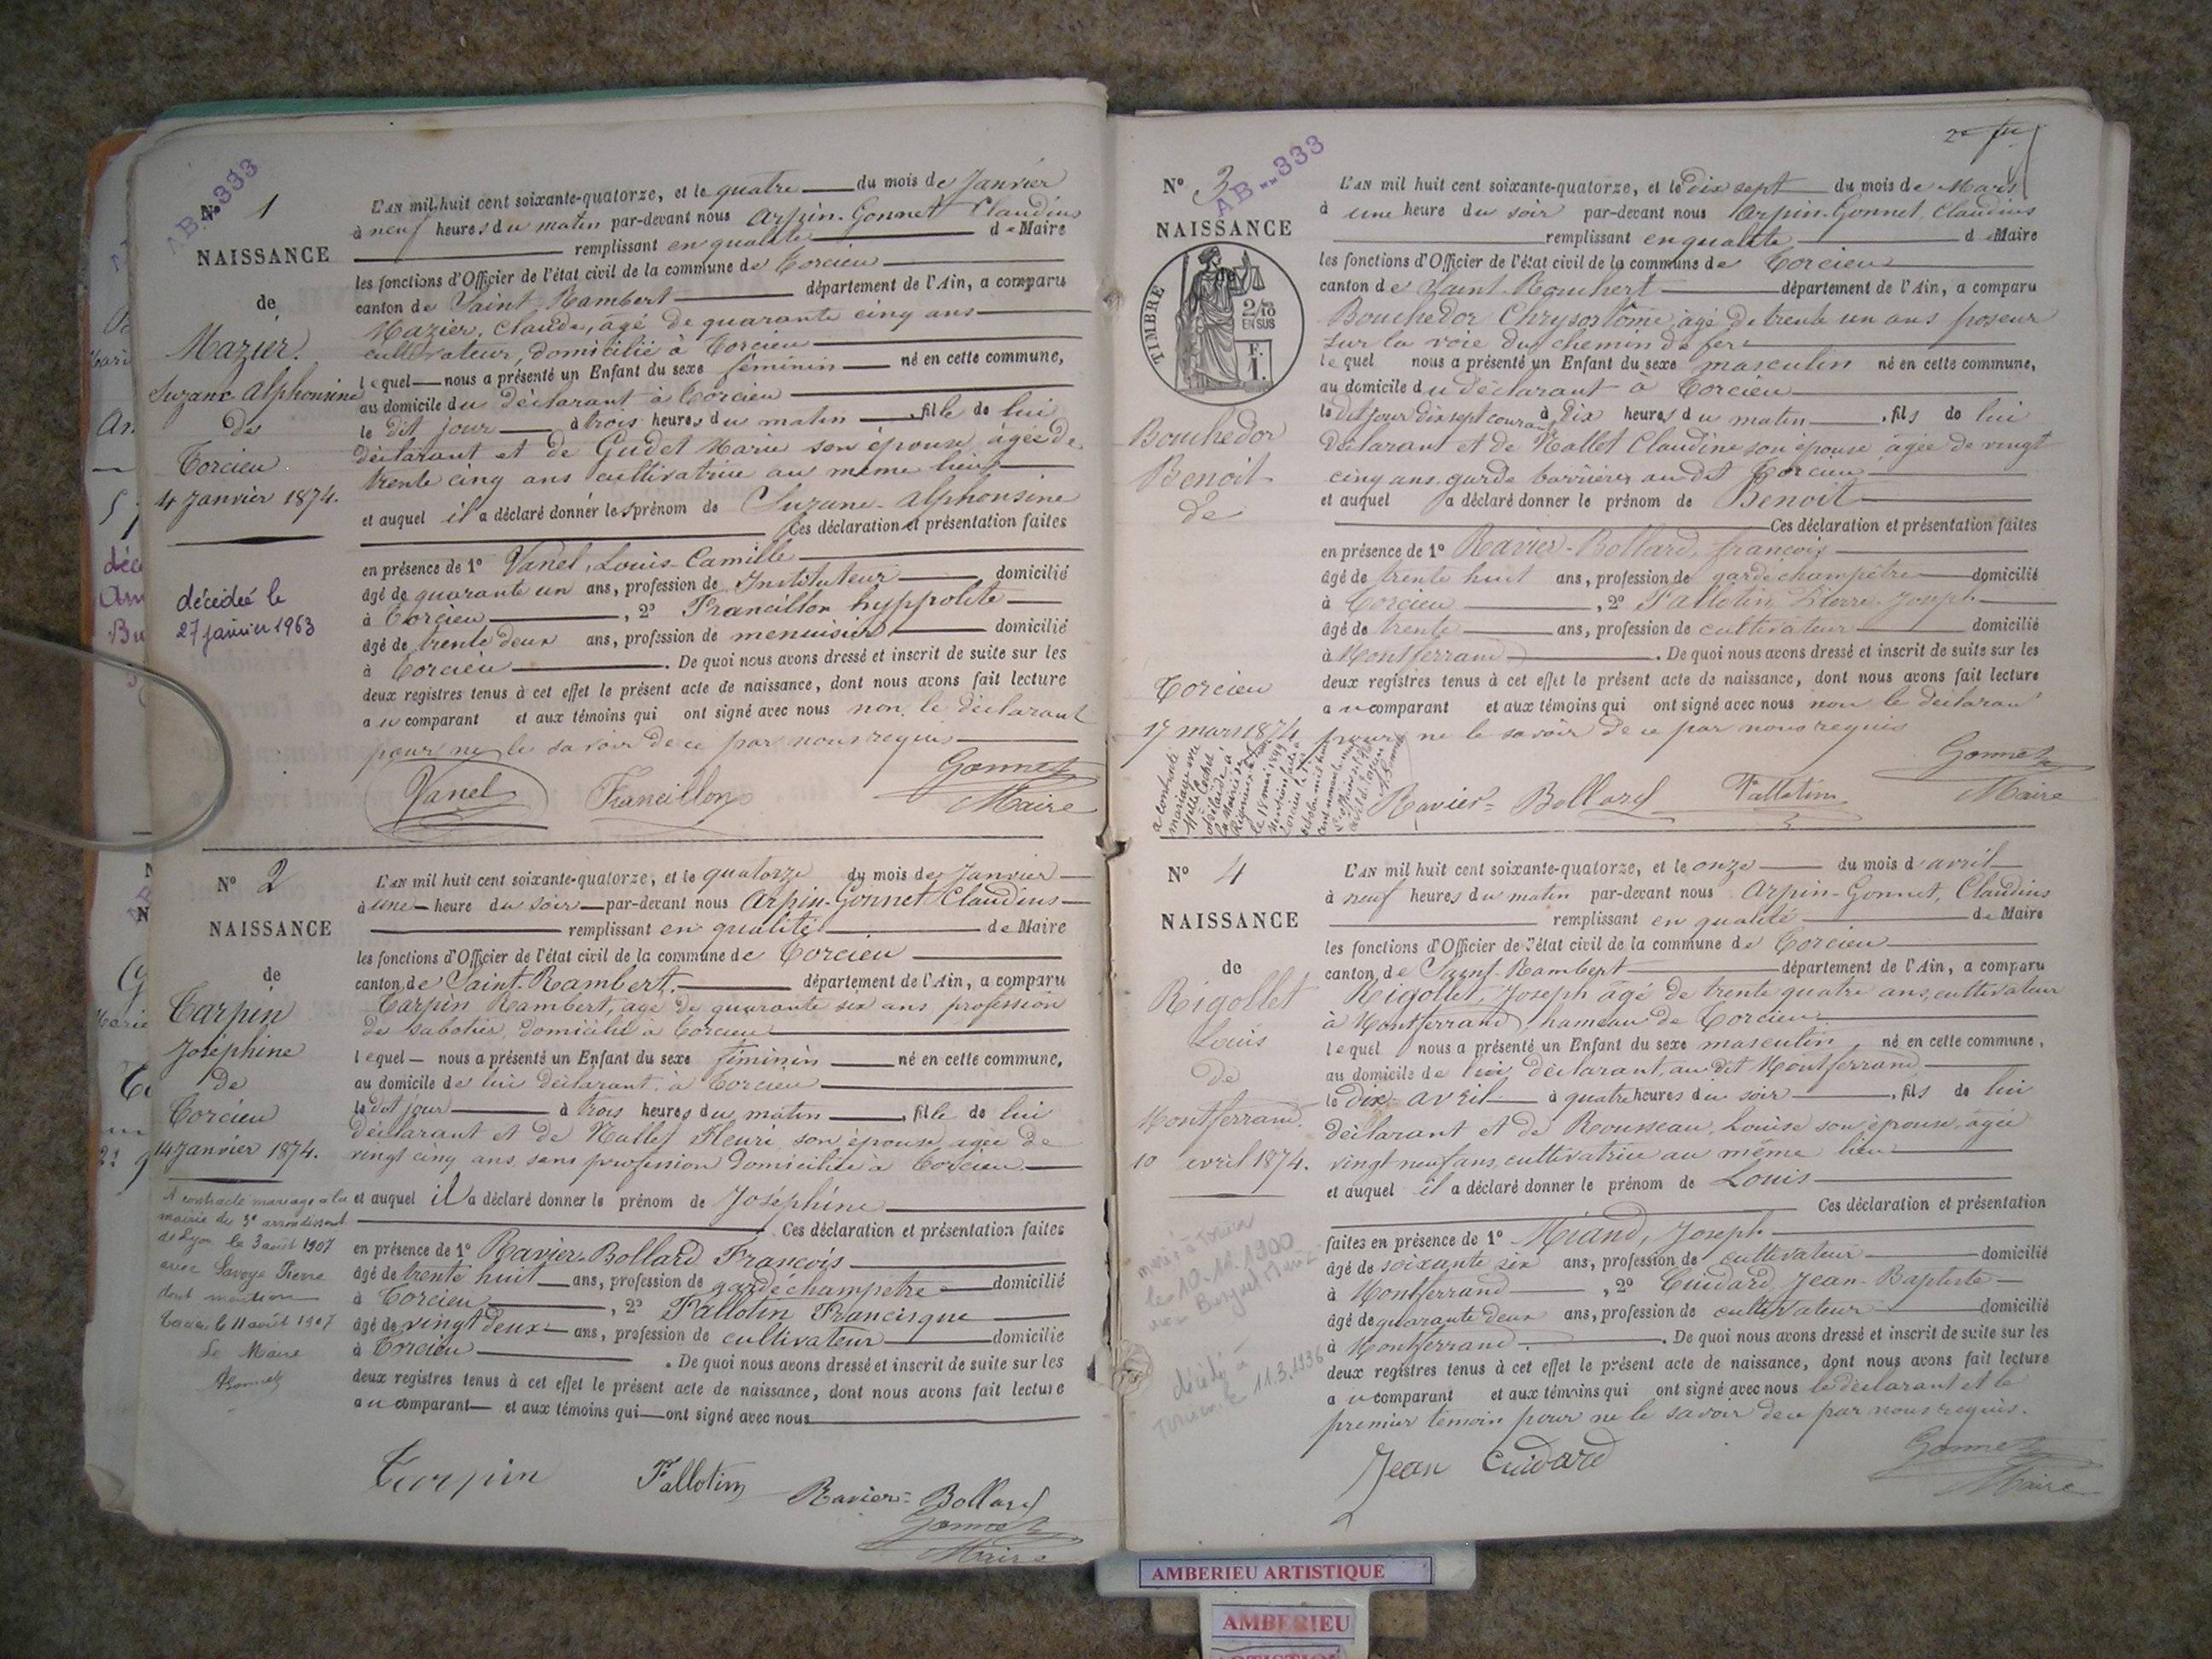 AB..333
N° 1
NAISSANCE
de
Mazier.
Suzane Alphonsine
de
Torcieu
4 Janvier 1874.
décédée le
27 janvier 1963
L'AN mil huit cent soixante-quatorze, et le quatre du mois de Janvier
à neuf heures du matin par-devant nous Arpin-Gonnet Claudius
remplissant en qualité de Maire
les fonctions d'Officier de l'état civil de la commune de Torcieu
canton de Saint-Rambert département de l'Ain, a comparu
Mazier, Claude, âgé de quarante cinq ans
cultivateur, domicilié à Torcieu
lequel nous a présenté un Enfant du sexe féminin né en cette commune,
au domicile du déclarant à Torcieu
le dit jour à trois heures du matin, fille de lui
déclarant et de Gudet Marie son épouse âgée de
trente cinq ans cultivatrice au même lieu
et auquel il a déclaré donner les prénom de Suzane-Alphonsine
Ces déclaration et présentation faites
en présence de 1° Vanel, Louis-Camille
âgé de quarante un ans, profession de Instituteur domicilié
à Torcieu, 2° Francillon hyppolite
âgé de trente deux ans, profession de menuisier domicilié
à Torcieu. De quoi nous avons dressé et inscrit de suite sur les
deux registres tenus à cet effet le présent acte de naissance, dont nous avons fait lecture
au comparant et aux témoins qui ont signé avec nous non le déclarant
pour ne le savoir de ce par nous requis
Vanel Francillon Gonnet
Maire
N° 2
NAISSANCE
de
Tarpin
Joséphine
de
Torcieu
14 Janvier 1874.
A contracté mariage à la
mairie du 3e arrondissmt
de Lyon le 3 août 1907
avec Savoye Pierre
dont mention
le 11 août 1907
Le Maire
L'AN mil huit cent soixante-quatorze, et le quatorze du mois de Janvier
à une heure du soir par-devant nous Arpin-Gonnet Claudius
remplissant en qualité de Maire
les fonctions d'Officier de l'état civil de la commune de Torcieu
canton de Saint-Rambert. département de l'Ain, a comparu
Tarpin Rambert, âgé de quarante six ans profession
de sabotier, domicilié à Torcieu
lequel nous a présenté un Enfant du sexe féminin né en cette commune,
au domicile de lui déclarant à Torcieu
le dit jour à trois heures du matin, fille de lui
déclarant et de Nallet Fleurie son épouse agée de
vingt cinq ans sans profession domiciliée à Torcieu
et auquel il a déclaré donner le prénom de Joséphine
Ces déclaration et présentation faites
en présence de 1° Ravier-Bollard François
âgé de trente huit ans, profession de garde champêtre domicilié
à Torcieu, 2° Fallotin Francisque
âgé de vingt deux ans, profession de cultivateur domicilié
à Torcieu. De quoi nous avons dressé et inscrit de suite sur les
deux registres tenus à cet effet le présent acte de naissance, dont nous avons fait lecture
au comparant et aux témoins qui ont signé avec nous
Tarpin Fallotin Ravier-Bollard
Gonnet
Maire
N° 3
AB..333
NAISSANCE
de
TIMBRE
2/10
EN SUS
F.
1.
Bouchedor
Benoit
de
Torcieu
17 mars 1874
a contracté
mariage
L'AN mil huit cent soixante-quatorze, et le dix sept du mois de Mars
à une heure du soir par-devant nous Arpin-Gonnet, Claudius
remplissant en qualité de Maire
les fonctions d'Officier de l'état civil de la commune de Torcieu
canton de Saint-Rambert département de l'Ain, a comparu
Bouchedor Chrysostôme, âgé de trente un ans poseur
sur la voie du chemin de fer
lequel nous a présenté un Enfant du sexe masculin né en cette commune,
au domicile du déclarant à Torcieu
le dit jour dix sept courant à dix heures du matin, fils de lui
déclarant et de Nallet Claudine son épouse âgée de vingt
cinq ans garde barrière au dit Torcieu
et auquel a déclaré donner le prénom de Benoit
Ces déclaration et présentation faites
en présence de 1° Ravier-Bollard, françois
âgé de trente huit ans, profession de garde champêtre domicilié
à Torcieu, 2° Fallotin Pierre-Joseph
âgé de trente ans, profession de cultivateur domicilié
à Montferrand. De quoi nous avons dressé et inscrit de suite sur les
deux registres tenus à cet effet le présent acte de naissance, dont nous avons fait lecture
au comparant et aux témoins qui ont signé avec nous non le déclarant
pour ne le savoir de ce par nous requis
Gonnet
Ravier-Bollard Fallotin Maire
N° 4
NAISSANCE
de
Rigollet
Louis
de
Montferrand.
10 avril 1874.
le 10.11.1900
décédé à
11.3.1936
L'AN mil huit cent soixante-quatorze, et le onze du mois d'avril
à neuf heures du matin par-devant nous Arpin-Gonnet, Claudius
remplissant en qualité de Maire
les fonctions d'Officier de l'état civil de la commune de Torcieu
canton de Saint-Rambert département de l'Ain, a comparu
Rigollet, Joseph âgé de trente quatre ans, cultivateur
à Montferrand, hameau de Torcieu
lequel nous a présenté un Enfant du sexe masculin, né en cette commune,
au domicile de lui déclarant, au dit Montferrand
le dix avril à quatre heures du soir, fils de lui
déclarant et de Rousseau, Louise son épouse, âgée
vingt neuf ans, cultivatrice au même lieu
et auquel il a déclaré donner le prénom de Louis
Ces déclaration et présentation
faites en présence de 1° Miand, Joseph
âgé de soixante six ans, profession de cultivateur domicilié
à Montferrand, 2° Cuidard, Jean-Baptiste
âgé de quarante deux ans, profession de cultivateur domicilié
à Montferrand. De quoi nous avons dressé et inscrit de suite sur les
deux registres tenus à cet effet le présent acte de naissance, dont nous avons fait lecture
au comparant et aux témoins qui ont signé avec nous le déclarant et le
premier témoin pour ne le savoir de ce par nous requis.
Jean Cuidard Gonnet
Maire
AMBERIEU ARTISTIQUE
AMBERIEU
ARTISTIQUE